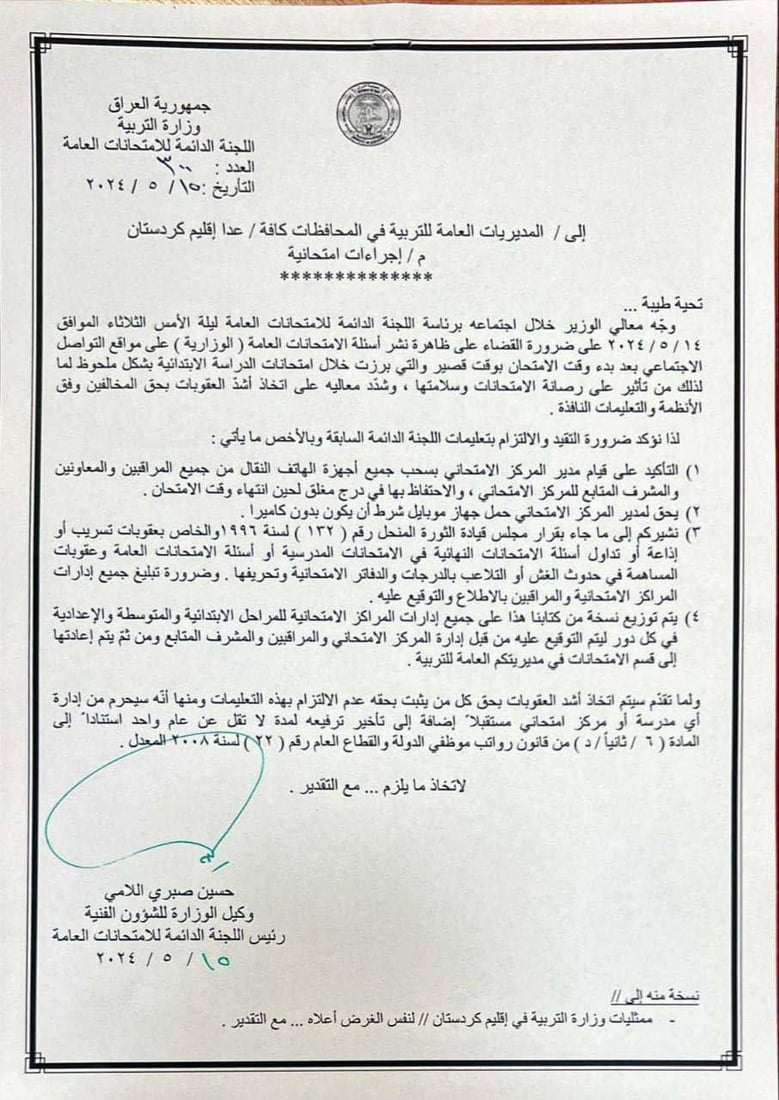 جمهورية العراق
وزارة التربية
اللجنة الدائمة للامتحانات العامة
العدد : ٣٠٠
التاريخ : ١٥ / ٥ / ٢٠٢٤
إلى / المديريات العامة للتربية في المحافظات كافة / عدا إقليم كردستان
م / إجراءات امتحانية
**************
تحية طيبة ...
وجّه معالي الوزير خلال اجتماعه برئاسة اللجنة الدائمة للامتحانات العامة ليلة الأمس الثلاثاء الموافق
١٤ / ٥ / ٢٠٢٤ على ضرورة القضاء على ظاهرة نشر أسئلة الامتحانات العامة ( الوزارية ) على مواقع التواصل
الاجتماعي بعد بدء وقت الامتحان بوقت قصير والتي برزت خلال امتحانات الدراسة الابتدائية بشكل ملحوظ لما
لذلك من تأثير على رصانة الامتحانات وسلامتها ، وشدّد معاليه على اتخاذ أشدّ العقوبات بحق المخالفين وفق
الأنظمة والتعليمات النافذة .
لذا نؤكد ضرورة التقيد والالتزام بتعليمات اللجنة الدائمة السابقة وبالأخص ما يأتي :
١) التأكيد على قيام مدير المركز الامتحاني بسحب جميع أجهزة الهاتف النقال من جميع المراقبين والمعاونين
والمشرف المتابع للمركز الامتحاني ، والاحتفاظ بها في درج مغلق لحين انتهاء وقت الامتحان .
٢) يحق لمدير المركز الامتحاني حمل جهاز موبايل شرط أن يكون بدون كاميرا .
٣) نشيركم إلى ما جاء بقرار مجلس قيادة الثورة المنحل رقم ( ١٣٢ ) لسنة ١٩٩٦والخاص بعقوبات تسريب أو
إذاعة أو تداول أسئلة الامتحانات النهائية في الامتحانات المدرسية أو أسئلة الامتحانات العامة وعقوبات
المساهمة في حدوث الغش أو التلاعب بالدرجات والدفاتر الامتحانية وتحريفها . وضرورة تبليغ جميع إدارات
المراكز الامتحانية والمراقبين بالاطلاع والتوقيع عليه .
٤) يتم توزيع نسخة من كتابنا هذا على جميع إدارات المراكز الامتحانية للمراحل الابتدائية والمتوسطة والإعدادية
في كل دور ليتم التوقيع عليه من قبل إدارة المركز الامتحاني والمراقبين والمشرف المتابع ومن ثمّ يتم إعادتها
إلى قسم الامتحانات في مديريتكم العامة للتربية .
ولما تقدّم سيتم اتخاذ أشد العقوبات بحق كل من يثبت بحقه عدم الالتزام بهذه التعليمات ومنها أنّه سيحرم من إدارة
أي مدرسة أو مركز امتحاني مستقبلاً إضافة إلى تأخير ترفيعه لمدة لا تقل عن عام واحد استناداً إلى
المادة ( ٦ / ثانياً / د ) من قانون رواتب موظفي الدولة والقطاع العام رقم ( ٢٢ ) لسنة ٢٠٠٨ المعدل .
لاتخاذ ما يلزم ... مع التقدير .
حسين صبري اللامي
وكيل الوزارة للشؤون الفنية
رئيس اللجنة الدائمة للامتحانات العامة
١٥ / ٥ / ٢٠٢٤
نسخة منه إلى //
- ممثليات وزارة التربية في إقليم كردستان // لنفس الغرض أعلاه ... مع التقدير .